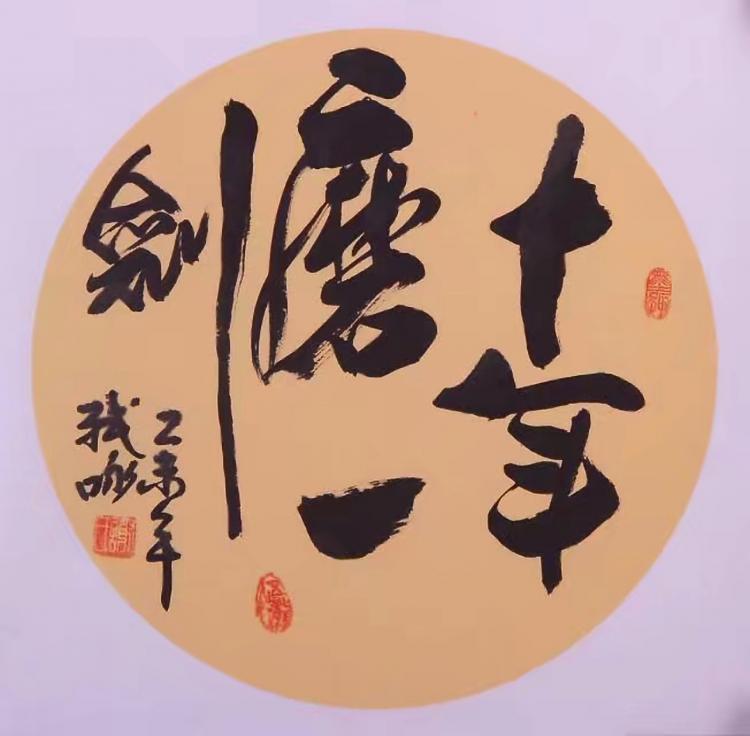 十年
磨一
剑
乙未年